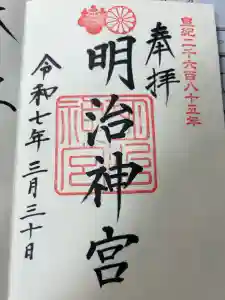 皇紀二千六百八十五年
奉拝
明治神宮
令和七年三月三十日